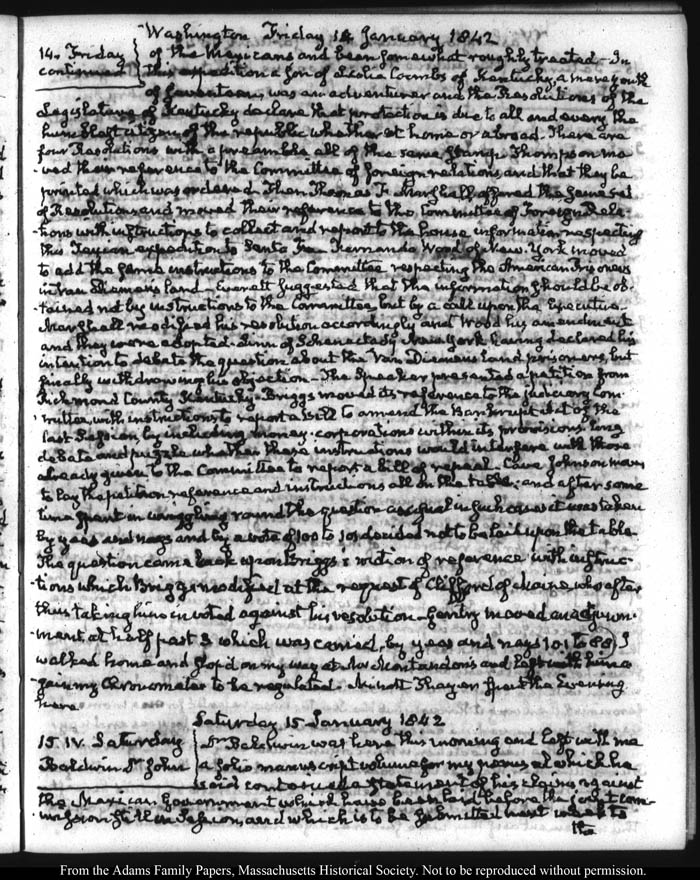 Washington Friday 14 January 1842
14. Friday
continued
of the Mexicans and been somewhat roughly treated – In
this expedition a son of Leslie Coombs of Kentucky, a mere youth
of seventeen, was an adventurer and the Resolutions of the
Legislature of Kentucky declare that protection is due to all and every the
humblest citizen of the republic whether at home or abroad. There are
four Resolutions with a preamble all of the same stamp. Thompson mo-
-ved their reference to the Committee of foreign relations, and that they be
printed which was ordered. Then Thomas F. Marshall offered the same set
of Resolutions and moved their reference to the Committee of Foreign Rela-
-tions with instructions to collect and report to the house information respecting
this Texican expedition to Santa Fe. Fernando Wood of New-York moved
to add the same instructions to the Committee respecting the American prisoners
in Van Diemens land – Everett suggested that the information should be ob-
-tained not by instructions to the Committee, but by a call upon the Executive
Marshall modified his resolution accordingly and Wood his amendment
and they were adopted. Linn of Schenectady New York having declared his
intention to debate the question about the Van Diemens Land prisoners, but
finally withdrawing his objection – The Speaker presented a petition from
Richmond County Kentucky. Briggs moved its reference to the judiciary Com-
-mittee, with instructions to report a bill to amend the Bankrupt act of the
last Session, by including money-corporations within its provisions. Long
debate and puzzle whether these instructions would interfere with those
already given to the Committee to report a bill of repeal. Cave Johnson moved
to lay the petition reference and instructions all on the table; and after some
time spent in wrangling round the question as usual in such cases it was taken
by yeas and nays and by a vote of 100 to 101 decided not to be laid upon the table.
The question came back upon Briggs's motion of reference with instruc-
-tions which Briggs modified at the request of Clifford of Maine who after
thus taking him in voted against his resolution – Gentry moved an adjourn-
-ment at half past 3 which was carried, by yeas and nays 101 to 88. I
walked home and stop'd on my way at Mr Montandon's and left with him a-
-gain my Chronometer to be regulated. Minott Thayer spent the Evening
here.
Saturday 15 January 1842
15. IV. Saturday
Baldwin Dr John
Dr Baldwin was here this morning and left with me
a folio manuscript volume for my perusal which he
said contained a statement of his claims against
the Mexican Government which have been laid before the joint Com-
-mission still in Session, and which is to be submitted next week to
the
From the Adams Family Papers, Massachusetts Historical Society. Not to be reproduced without permission.